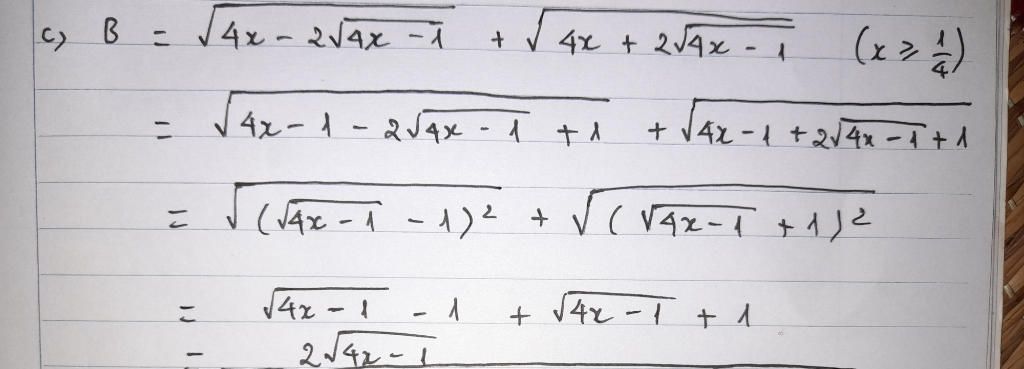 c) B = √(4x - 2√(4x - 1)) + √(4x + 2√(4x - 1)) (x ⩾ 1/4)
= √(4x - 1 - 2√(4x - 1) + 1) + √(4x - 1 + 2√(4x - 1) + 1)
= √((√(4x - 1) - 1)²) + √((√(4x - 1) + 1)²)
= √(4x - 1) - 1 + √(4x - 1) + 1
= 2√(4x - 1)